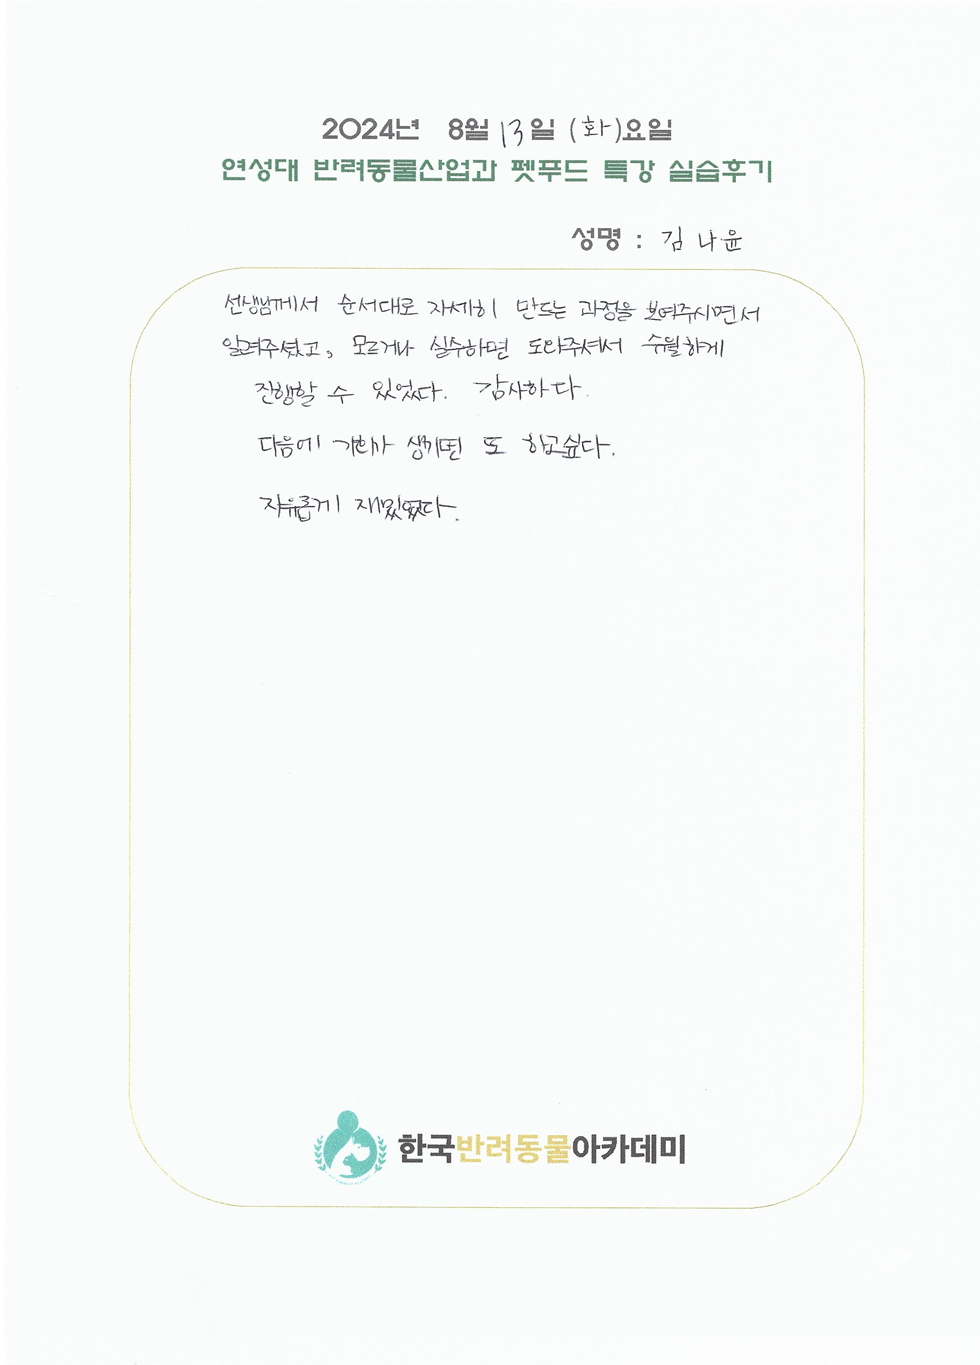 2024년 8월 13일 (화)요일
연성대 반려동물산업과 펫푸드 특강 실습후기
성명 : 김나윤
선생님께서 순서대로 자세히 만드는 과정을 보여주시면서
알려주셨고, 모르거나 실수하면 도와주셔서 수월하게
진행할 수 있었다. 감사하다.
다음에 기회가 생기면 또 하고싶다.
자유롭게 재밌었다.
한국반려동물아카데미